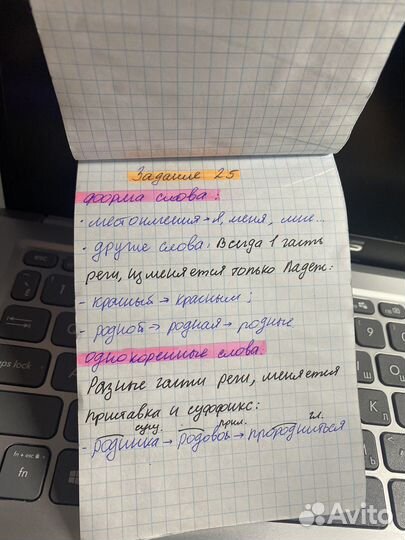 Задание 25
форма слова:
· местоимения → я, меня, мне...
· другие слова: Всегда 1 часть
речи, изменяется только Падеж:
- красный → красным;
- родной → родная → родные
однокоренные слова:
Разные части речи, меняется
приставка и суффикс:
сущ. прил. гл.
- родинка → родовой → породниться
caps lock
shift
fn + esc
fn
ctrl
Avito